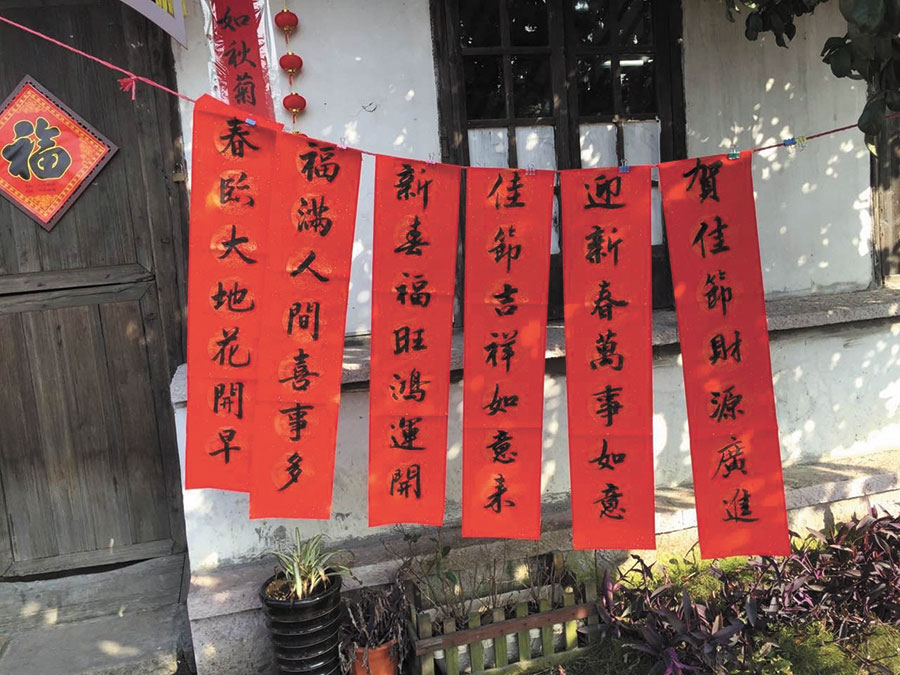 福
如秋菊
春臨大地花開早
福滿人間喜事多
新喜福旺鴻運開
佳節吉祥如意來
迎新春萬事如意
賀佳節財源廣進